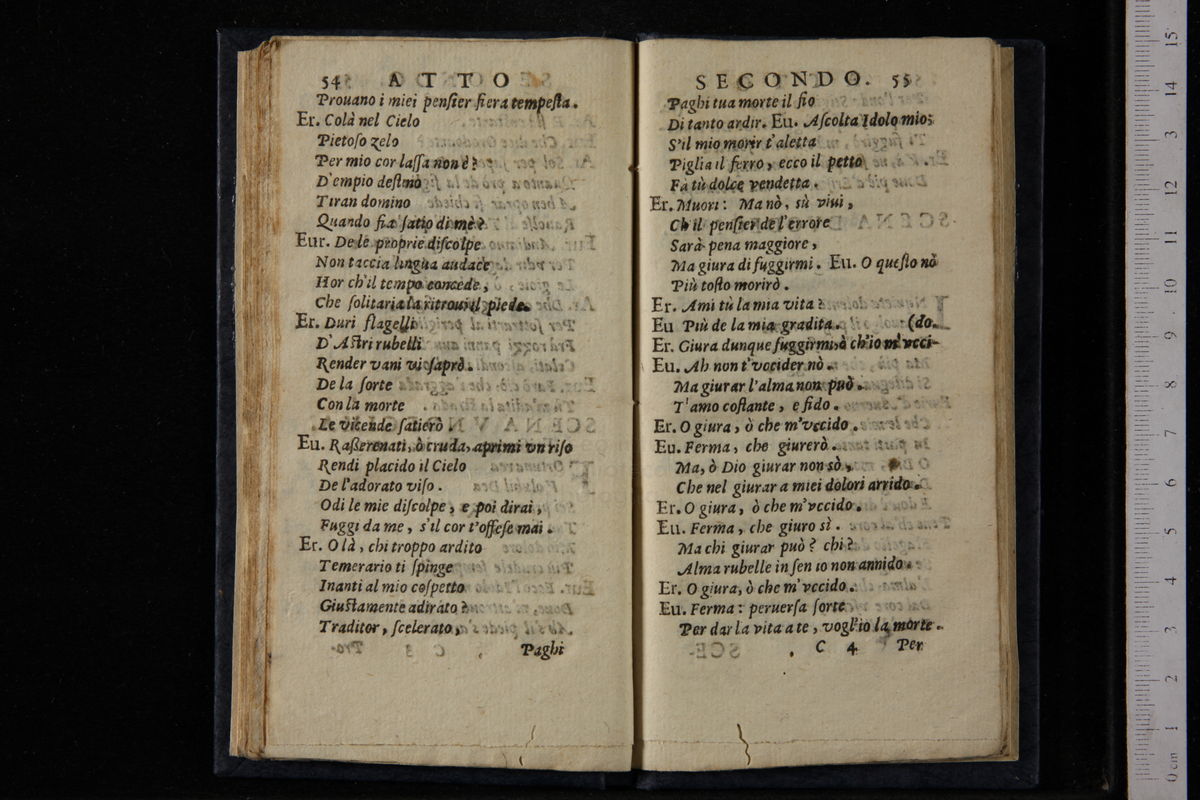 54 ATTO
Prouano i miei pensier fiera tempesta.
Er. Colà nel Cielo
Pietoso zelo
Per mio cor lassa non è?
D'empio destino
Tiran domino
Quando fia satio di mè?
Eur. De le proprie discolpe
Non taccia lingua audace
Hor ch'il tempo concede,
Che solitaria la ritroui il piede.
Er. Duri flagelli
D'Astri rubelli
Render vani vi saprò.
De la sorte
Con la morte
Le vicende satierò.
Eu. Rasserenati, ò cruda, aprimi vn riso
Rendi placido il Cielo
De l'adorato viso.
Odi le mie discolpe, e poi dirai,
Fuggi da me, s'il cor t'offese mai.
Er. Olà, chi troppo ardito
Temerario ti spinge
Inanti al mio cospetto
Giustamente adirato?
Traditor, scelerato,
C 3 Paghi
SECONDO. 55
Paghi tua morte il fio
Di tanto ardir. Eu. Ascolta Idolo mio;
S'il mio morir t'aletta
Piglia il ferro, ecco il petto
Fà tù dolce vendetta.
Er. Muori: Ma nò, sù viui,
Ch'il pensier de l'errore
Sarà pena maggiore,
Ma giura di fuggirmi. Eu. O questo nò
Più tosto morirò.
Er. Ami tù la mia vita?
Eu Più de la mia gradita. (do.
Er. Giura dunque fuggirmi, ò ch'io m'vcci-
Eu. Ah non t'vccider nò.
Ma giurar l'alma non può.
T'amo costante, e fido.
Er. O giura, ò che m'vccido.
Eu. Ferma, che giurerò.
Ma, ò Dio giurar non sò,
Che nel giurar a miei dolori arrido.
Er. O giura, ò che m'vccido.
Eu. Ferma, che giuro sì.
Ma chi giurar può? chi?
Alma rubelle in sen io non annido.
Er. O giura, ò che m'vccido.
Eu. Ferma: peruersa sorte
Per dar la vita a te, vogl'io la morte.
C 4 Per